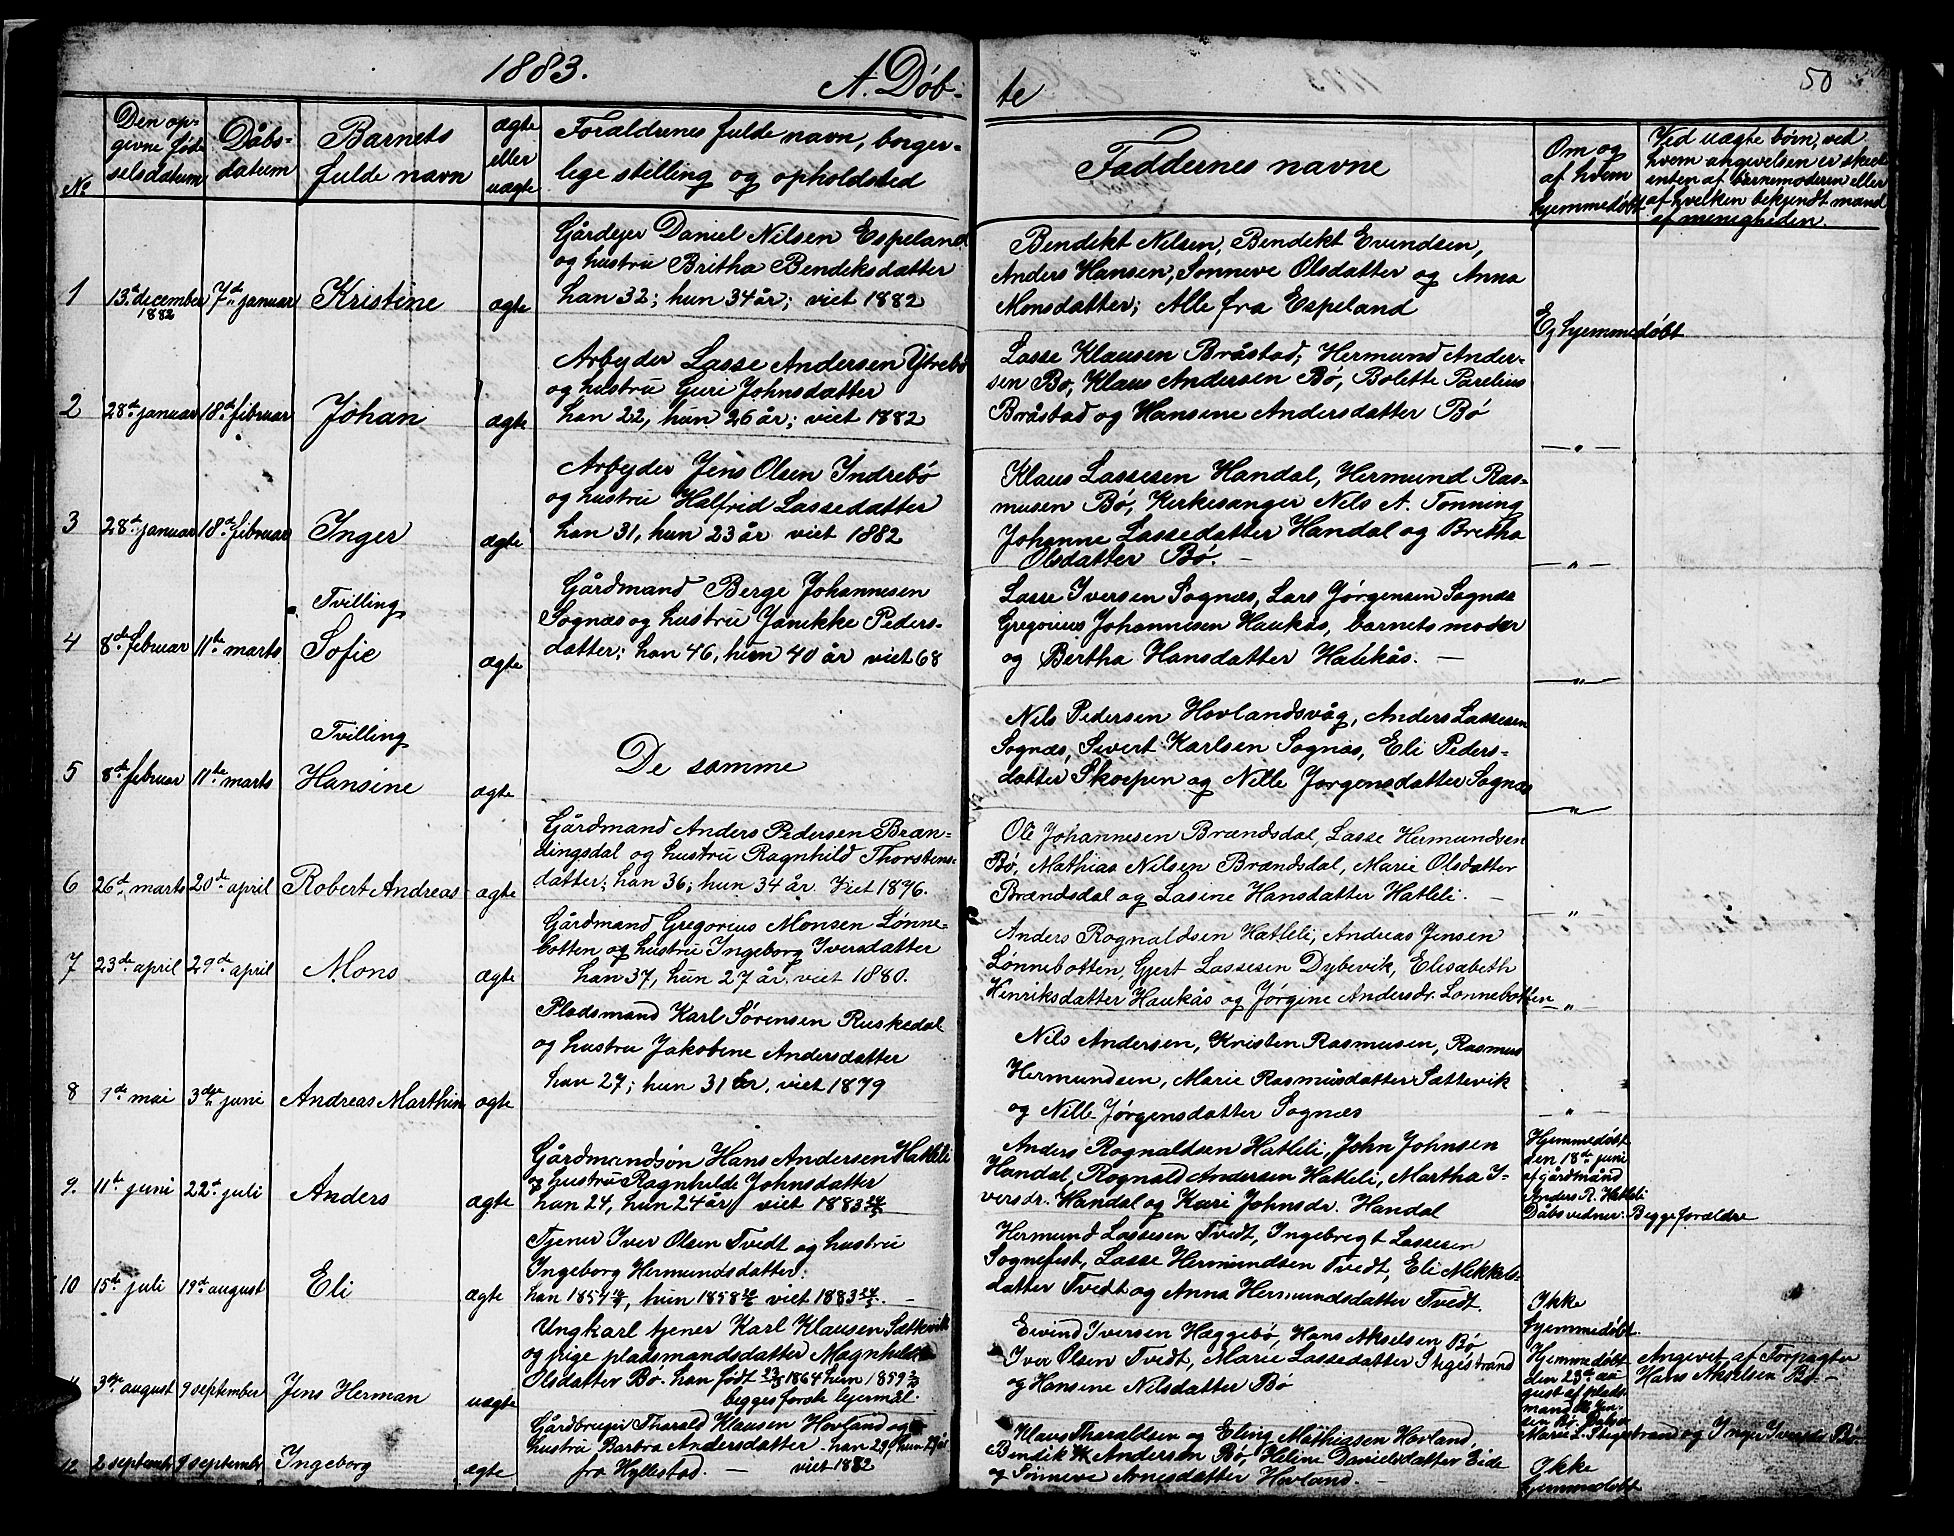 1883.
A. Døb-
te
50
No
Den op-
givne föd-
selsdatum
Dåbs-
datum
Barnets
fulde navn
ægte
eller
uægte
Forældrenes fulde navn, borger-
lige stilling og opholdsted
Faddernes navne
Om og
af hvem
hjemmedøbt
Ved uægte börn, ved
hvem angivelsen er skeet
enten af barnemoderen eller
af hvilken bekjendt mand
af menigheden.
1
13de december
1882
7de januar
Kristine
ægte
Gårdejer Daniel Nilsen Espeland
og hustru Britha Bendeksdatter
han 32; hun 34 år; viet 1882
Bendikt Nilsen, Bendekt Evindsen,
Anders Hansen, Sønneve Olsdatter og Anna
Monsdatter; Alle fra Espeland
Ej hjemmedøbt
2
28de januar
18de februar
Johan
ægte
Arbejder Lasse Andersen Ytrebø
og hustru Guri Johnsdatter
han 22, hun 26 år; viet 1882
Lasse Klausen Bråstad; Hermund Ander-
sen Bø, Klaus Andersen Bø, Bolette Parelius
Bråstad og Hansine Andersdatter Bø
— " —
3
28de januar
18de februar
Inger
ægte
Arbejder Jens Olsen Indrebø
og hustru Halfrid Lassedatter
han 31, hun 23 år viet 1882
Klaus Lassesen Handal, Hermund Ras-
musen Bø, Kirkesanger Nils A. Tonning
Johanne Lassedatter Handal og Bretha
Olsdatter Bø. —
— " —
4
8de februar
11te marts
Tvilling
Sofie
ægte
Gårdmand Berge Johannesen
Sognæs og hustru Janikke Peders-
datter; han 46, hun 40 år viet 68
Lasse Iversen Sognæs, Lars Jørgensen Sognæs
Gregorius Johannesen Haukås, barnets moder
og Bertha Hansdatter Haukås. —
— " —
5
8de februar
11te marts
Tvilling
Hansine
ægte
De samme
Nils Pedersen Hovlandsvåg, Anders Lassesen
Sognæs, Sivert Karlsen Sognæs, Eli Peders-
datter Skorpen og Nille Jørgensdatter Sognæs
— " —
6
26de marts
20de april
Robert Andreas
ægte
Gårdmand Anders Pedersen Bræn-
dingsdal og hustru Ragnhild Thorstens-
datter; han 36; hun 34 år. Viet 1876.
Ole Johannesen Brændsdal, Lasse Hermundsen
Bø, Mathias Nilsen Brændsdal, Marie Olsdatter
Brændsdal og Lasine Hansdatter Hatleli. —
— " —
7
23de april
29de april
Mons
ægte
Gårdmand Gregorius Monsen Lønne-
botten og hustru Ingeborg Iversdatter
han 37, hun 27 år viet 1880.
Anders Rognaldsen Hatleli, Andreas Jensen
Lønnebotten, Gjert Lassesen Dybevik, Elisabeth
Henriksdatter Haukås og Jørgine Andersdr. Lønnebotten
— " —
8
7de mai
3dje juni
Andreas Marthin
ægte
Pladsmand Karl Sørensen Ruskedal
og hustru Jakobine Andersdatter
han 27; hun 31 år, viet 1879
Nils Andersen, Kristen Rasmusen, Rasmus
Hermundsen, Marie Rasmusdatter Sættevik
og Nille Jørgensdatter Sognæs
— " —
9.
11te juni
22de juli
Anders
ægte
Gårdmandsön Hans Andersen Hatleli
og hustru Ragnhilde Johnsdatter
han 24, hun 24 år, viet 1883
Anders Rognaldsen Hatleli, John Johnsen
Handal, Rognald Andersen Hatleli, Martha I-
versdr. Handal og Kari Johnsdr. Handal
Hjemmedøbt
den 18de juni
af gårdmand
Anders R. Hatleli
Dåbsvidner: Begge forældre
10
15de juli
19de august
Eli
ægte
Tjener Iver Olsen Tvedt og hustru
Ingeborg Hermundsdatter;
han 1857, hun 1858 viet 1883 —
Hermund Lassesen Tvedt, Ingebregt Lassesen
Sognefest, Lasse Hermundsen Tvedt, Eli Mikkels-
datter Tvedt og Anna Hermundsdatter Tvedt.
Ikke
hjemmedøbt.
3dje august
9 september
Jens Herman
uægte
Ungkarl tjener Karl Klausen Sættevik
og pige pladsmandsdatter Magnhilde
Olsdatter Bø. han født 1864 hun 1859
begges førsk lejermål.
Eivind Iversen Hæggebø, Hans Akselsen Bø
Iver Olsen Tvedt, Marie Lassedatter Stegestrand
og Hansine Nilsdatter Bø
Hjemmedøbt
den 23de au-
gust af plads-
mand Jen-
sen Bø.
Marie L. Stegestrand og Inger Iversdr Bø
Angivet af Forpagter
Hans Akselsen Bø. —
12
2 september
9 september
Ingeborg
ægte
Gårdbruger Tharald Klausen Hovland og
hustru Barbra Andersdatter han 29, hun 29 år
fra Hyllestad. — viet 1882
Klaus Tharaldsen og Eling Mathiassen Hovland,
Bendik Andersen Bø, Heline Danielsdatter Eide
og Sønneve Arnesdatter Hovland. —
Ikke
hjemmedøbt